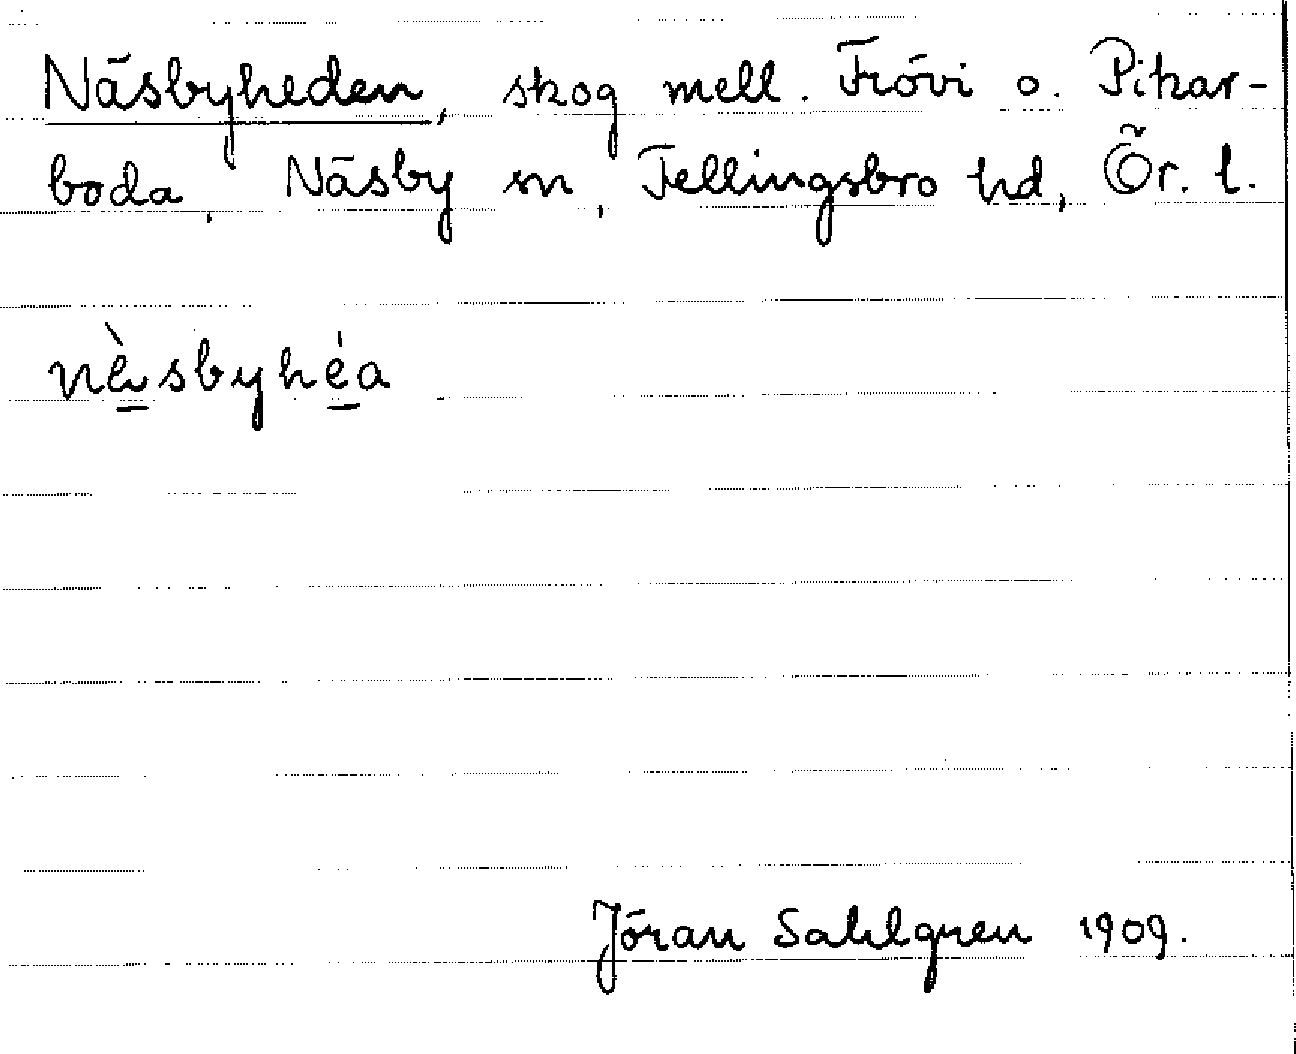 Näsbyheden, skog mell. Frövi o. Pikar-
boda, Näsby sn, Fellingsbro hd, Ör. l.
nèsbyhéa
Jöran Sahlgren 1909.